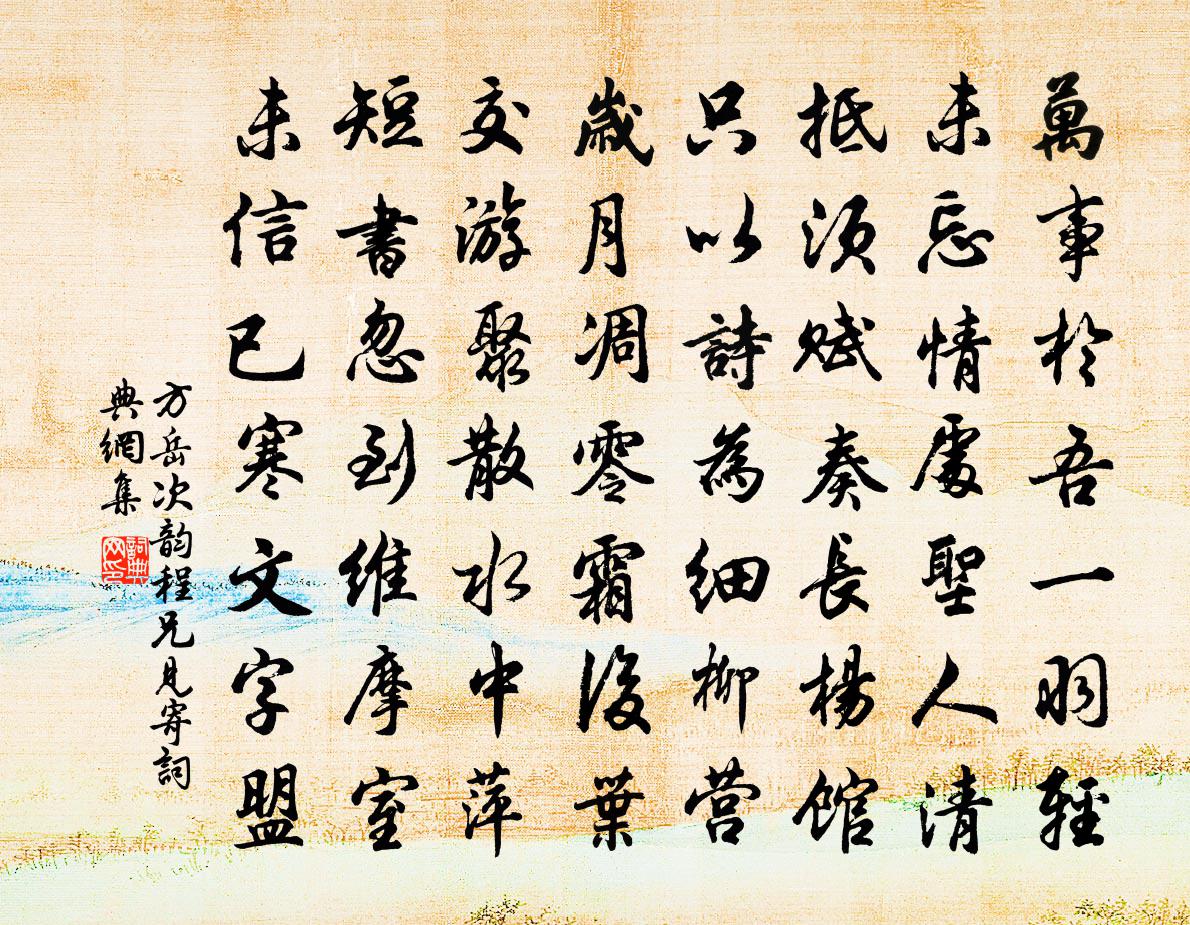 萬事於吾一羽輕
未忘情處聖人清
抵須賦奏長楊館
只以詩為細柳营
歲月凋零霜後葉
交游聚散水中萍
短書忽到維摩室
未信已寒文字盟
方岳次韵程兄見寄詞
典網集
詞典
网印